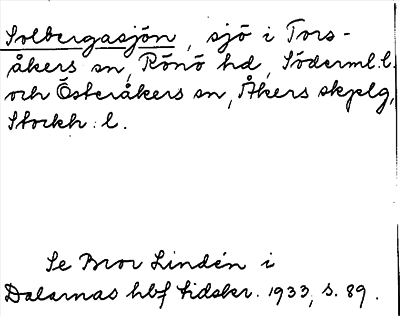 Solbergasjön, sjö i Tors-
åkers sn, Rönö hd, Söderml. l.
och Österåkers sn, Åkers skplg,
Stockh. l.
Se Bror Lindén i
Dalarnas hbf tidskr. 1933, s. 89.